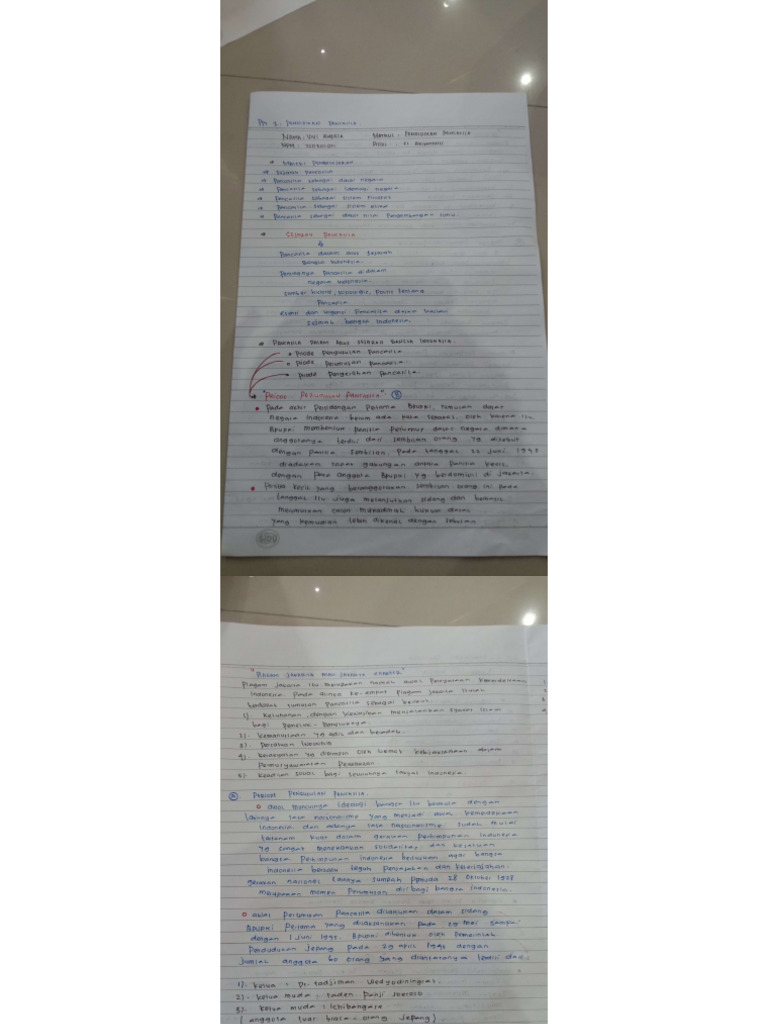 Pendidikan Pancasila
Nama :
Matkul : Pendidikan Pancasila
NPM :
Prodi :
→ Materi Pembelajaran
→ Sejarah Pancasila
→ Pancasila sebagai dasar negara
→ Pancasila sebagai Ideologi negara
→ Pancasila sebagai sistem filsafat
→ Pancasila sebagai sistem etika
→ Pancasila sebagai dasar nilai Pengembangan ilmu.
→ Sejarah Pancasila
Pancasila dalam arus sejarah
bangsa Indonesia.
Pancasila dalam
negara Indonesia.
sumber historis, sosiologis, politis tentang
Pancasila.
esensi dan urgensi Pancasila dalam kajian
sejarah bangsa Indonesia.
→ Pancasila dalam arus sejarah bangsa Indonesia.
• Periode Pengusulan Pancasila
• Periode Perumusan Pancasila.
• Periode Pengesahan Pancasila.
"Periode Perumusan Pancasila"
• Pada akhir Persidangan Pertama Bpupki, rumusan dasar
negara Indonesia belum ada oleh karena itu
Bpupki membentuk panitia perumus dasar negara dimana
anggotanya terdiri dari sembilan orang yg disebut
dengan panitia sembilan. Pada tanggal 22 Juni 1945
diadakan rapat gabungan antara panitia kecil,
dengan para anggota Bpupki yg berdomisili di Jakarta.
• Panitia kecil yang beranggotakan sembilan orang ini pada
tanggal itu juga melanjutkan sidang dan berhasil
merumuskan calon mukadimah hukum dasar
yang kemudian lebih dikenal dengan sebutan
"Piagam Jakarta atau Jakarta Charter"
Piagam Jakarta itu merupakan naskah awal pernyataan kemerdekaan
Indonesia. Pada alinea ke-empat Piagam Jakarta
terdapat rumusan Pancasila sebagai berikut.
1). Ketuhanan, dengan kewajiban menjalankan syariat Islam
bagi pemeluk-pemeluknya.
2). Kemanusiaan yg adil dan beradab.
3). Persatuan Indonesia
4). Kerakyatan yg dipimpin oleh hikmat kebijaksanaan dalam
Permusyawaratan Perwakilan.
5). Keadilan sosial bagi seluruhnya rakyat Indonesia.
Periode Pengusulan Pancasila.
○ awal munculnya ideologi bangsa itu bermula dengan
lahirnya rasa nasionalisme yang menjadi awal kemerdekaan
Indonesia. dan adanya rasa nasionalisme sudah mulai
tertanam kuat dalam gerakan Perhimpunan Indonesia
yg sangat menekankan solidaritas dan kesatuan
bangsa. Perhimpunan Indonesia berjuang agar bangsa
Indonesia
gerakan nasional lainnya sumpah Pemuda 28 Oktober 1928
merupakan momen Perumusan diri bagi bangsa Indonesia.
○ awal Perumusan Pancasila dilakukan dalam sidang
Bpupki Pertama yang dilaksanakan pada 29 Mei sampai
dengan 1 Juni 1945. Bpupki dibentuk oleh Pemerintah
Pendudukan Jepang pada 29 april 1945 dengan
Jumlah anggota 60 orang yang diantaranya terdiri dari
1). Ketua : Dr. Radjiman Wedyodiningrat
2). Ketua muda : Raden Panji Soeroso
3). Ketua muda : Ichibangare
( anggota luar biasa - orang Jepang)